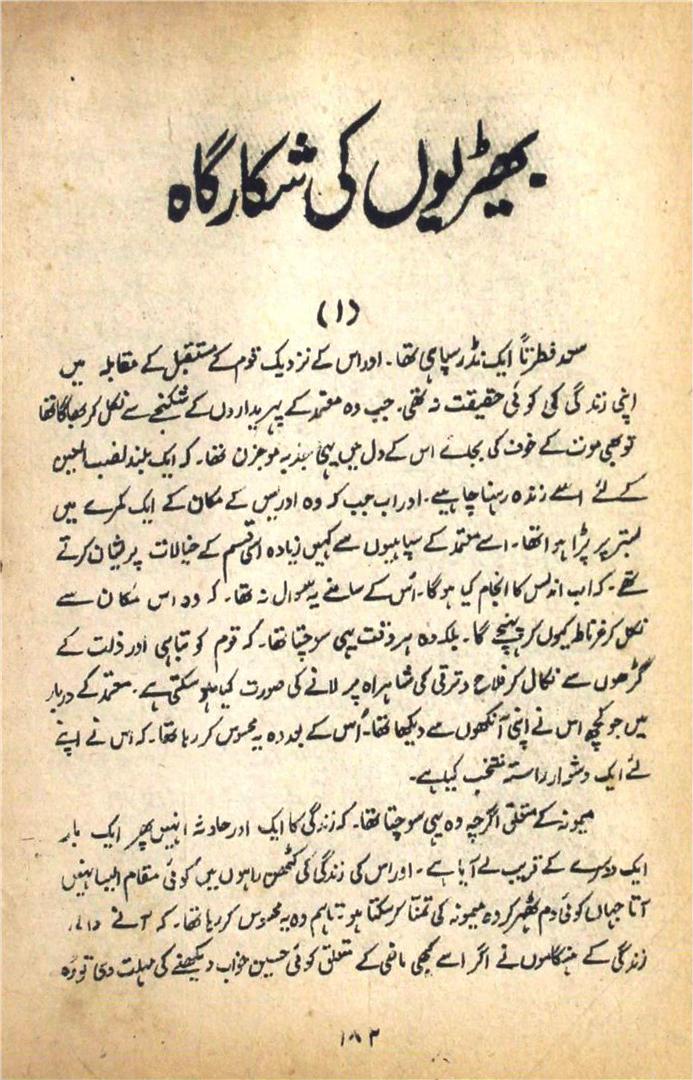 بھیڑیوں کی شکارگاہ
(۱)
سعد فطرتاً ایک نڈر سپاہی تھا۔ اور اس کے نزدیک قوم کے مستقبل کے مقابلہ میں
اپنی زندگی کی کوئی حقیقت نہ تھی۔ جب وہ معتمد کے پہریداروں کے شکنجے سے نکل کر بھاگا تھا
تو بھی موت کے خوف کی بجائے اس کے دل میں یہی جذبہ موجزن تھا۔ کہ ایک بلند نصب العین
کے لئے اسے زندہ رہنا چاہیے۔ اور اب جب کہ وہ ادریس کے مکان کے ایک کمرے میں
بستر پر پڑا ہوا تھا۔ اسے معتمد کے سپاہیوں سے کہیں زیادہ اس قسم کے خیالات پریشان کرتے
تھے۔ کہ اب اندلس کا انجام کیا ہوگا۔ اُس کے سامنے یہ سوال نہ تھا۔ کہ وہ اس مکان سے
نکل کر غرناطہ کیوں کر پہنچے گا۔ بلکہ وہ ہر وقت یہی سوچتا تھا۔ کہ قوم کو تباہی اور ذلت کے
گڑھوں سے نکال کر فلاح و ترقی کی شاہراہ پر لانے کی صورت کیا ہو سکتی ہے۔ معتمد کے دربار
میں جو کچھ اس نے اپنی آنکھوں سے دیکھا تھا۔ اُس کے بعد وہ یہ محسوس کر رہا تھا۔ کہ اس نے اپنے
لئے ایک دشوار راستہ منتخب کیا ہے۔
میمونہ کے متعلق اگرچہ وہ یہی سوچتا تھا۔ کہ زندگی کا ایک اور حادثہ انہیں پھر ایک بار
ایک دوسرے کے قریب لے آیا ہے۔ اور اس کی زندگی کی کٹھن راہوں میں کوئی مقام ایسا نہیں
آتا جہاں کوئی دم ٹھہر کر وہ میمونہ کی تمنا کر سکتا ہو۔ تاہم وہ یہ محسوس کر رہا تھا۔ کہ آنے والی
زندگی کے ہنگاموں نے اگر اسے کبھی ماضی کے متعلق کوئی حسین خواب دیکھنے کی مہلت دی تو وہ
۱۸۲